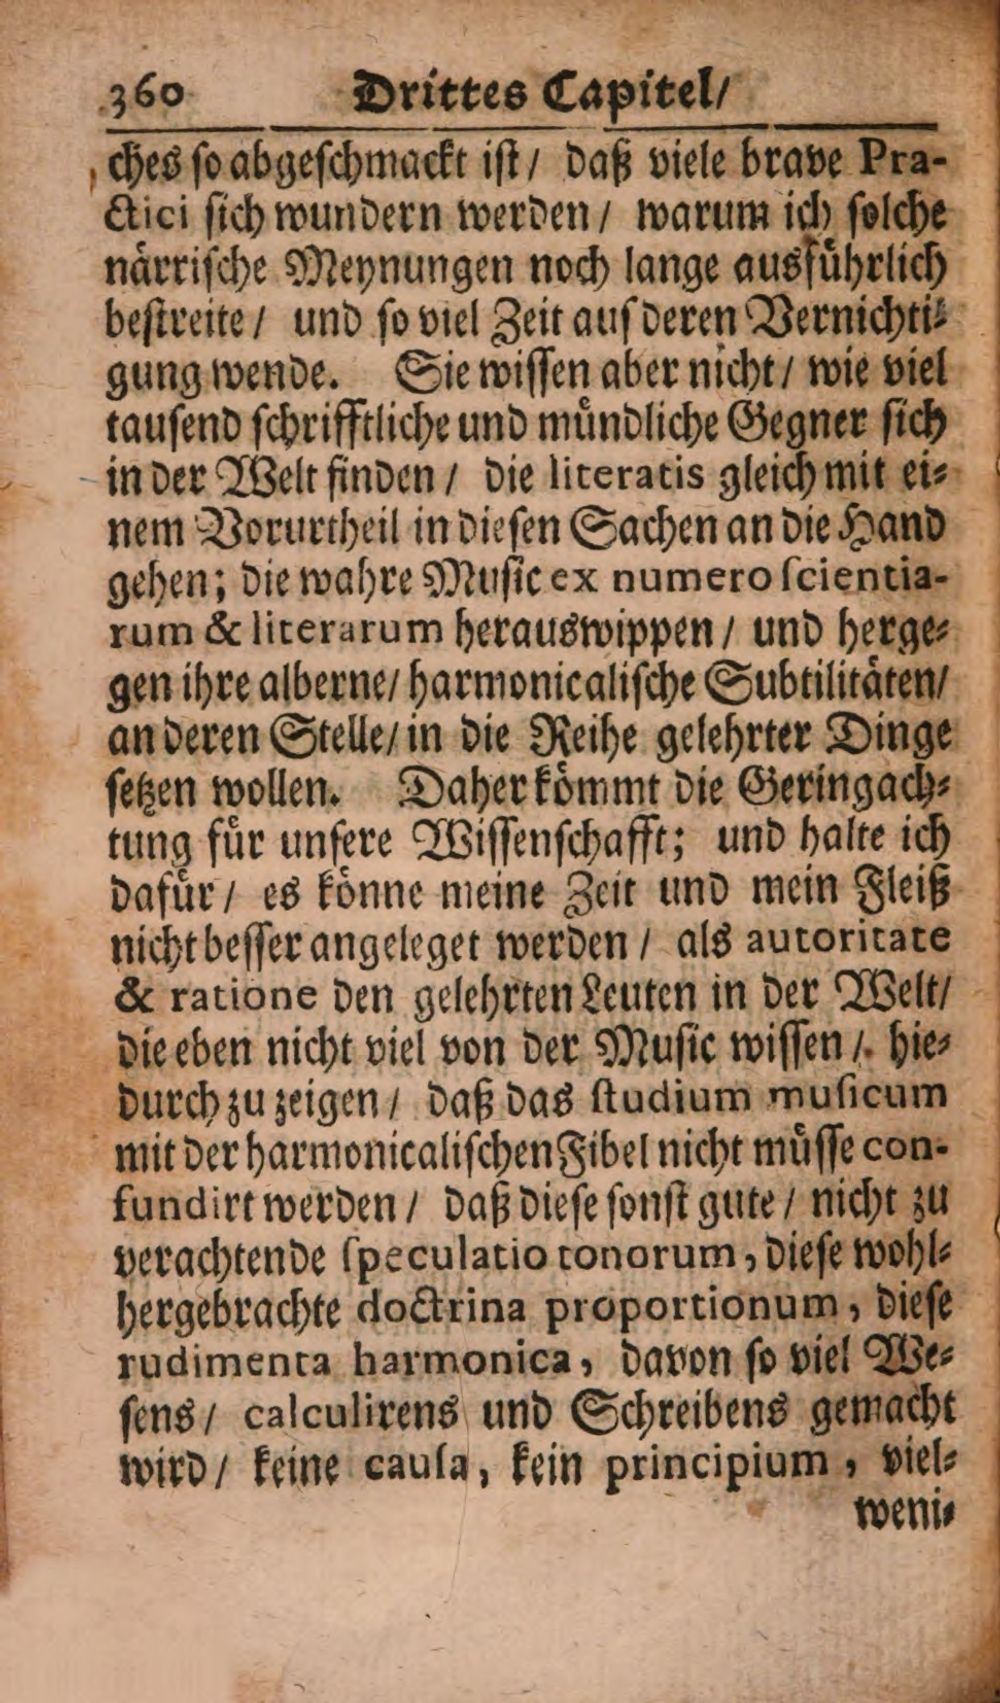 360 Drittes Capitel/
ches so abgeschmackt ist/ daß viele brave Pra-
ctici sich wundern werden/ warum ich solche
närrische Meynungen noch lange ausführlich
bestreite/ und so viel Zeit auf deren Vernichti-
gung wende. Sie wissen aber nicht/ wie viel
tausend schrifftliche und mündliche Gegner sich
in der Welt finden/ die literatis gleich mit ei-
nem Vorurtheil in diesen Sachen an die Hand
gehen; die wahre Music ex numero scientia-
rum & literarum herauswippen/ und herge-
gen ihre alberne/ harmonicalische Subtilitäten/
an deren Stelle/ in die Reihe gelehrter Dinge
setzen wollen. Daher kömmt die Geringach-
tung für unsere Wissenschafft; und halte ich
dafür/ es könne meine Zeit und mein Fleiß
nicht besser angeleget werden/ als autoritate
& ratione den gelehrten Leuten in der Welt/
die eben nicht viel von der Music wissen/. hie-
durch zu zeigen/ daß das studium musicum
mit der harmonicalischen Fibel nicht müsse con-
fundirt werden/ daß diese sonst gute/ nicht zu
verachtende speculatio tonorum, diese wohl-
hergebrachte doctrina proportionum, diese
rudimenta harmonica, davon so viel We-
sens/ calculirens und Schreibens gemacht
wird/ keine causa, kein principium, viel-
weni-